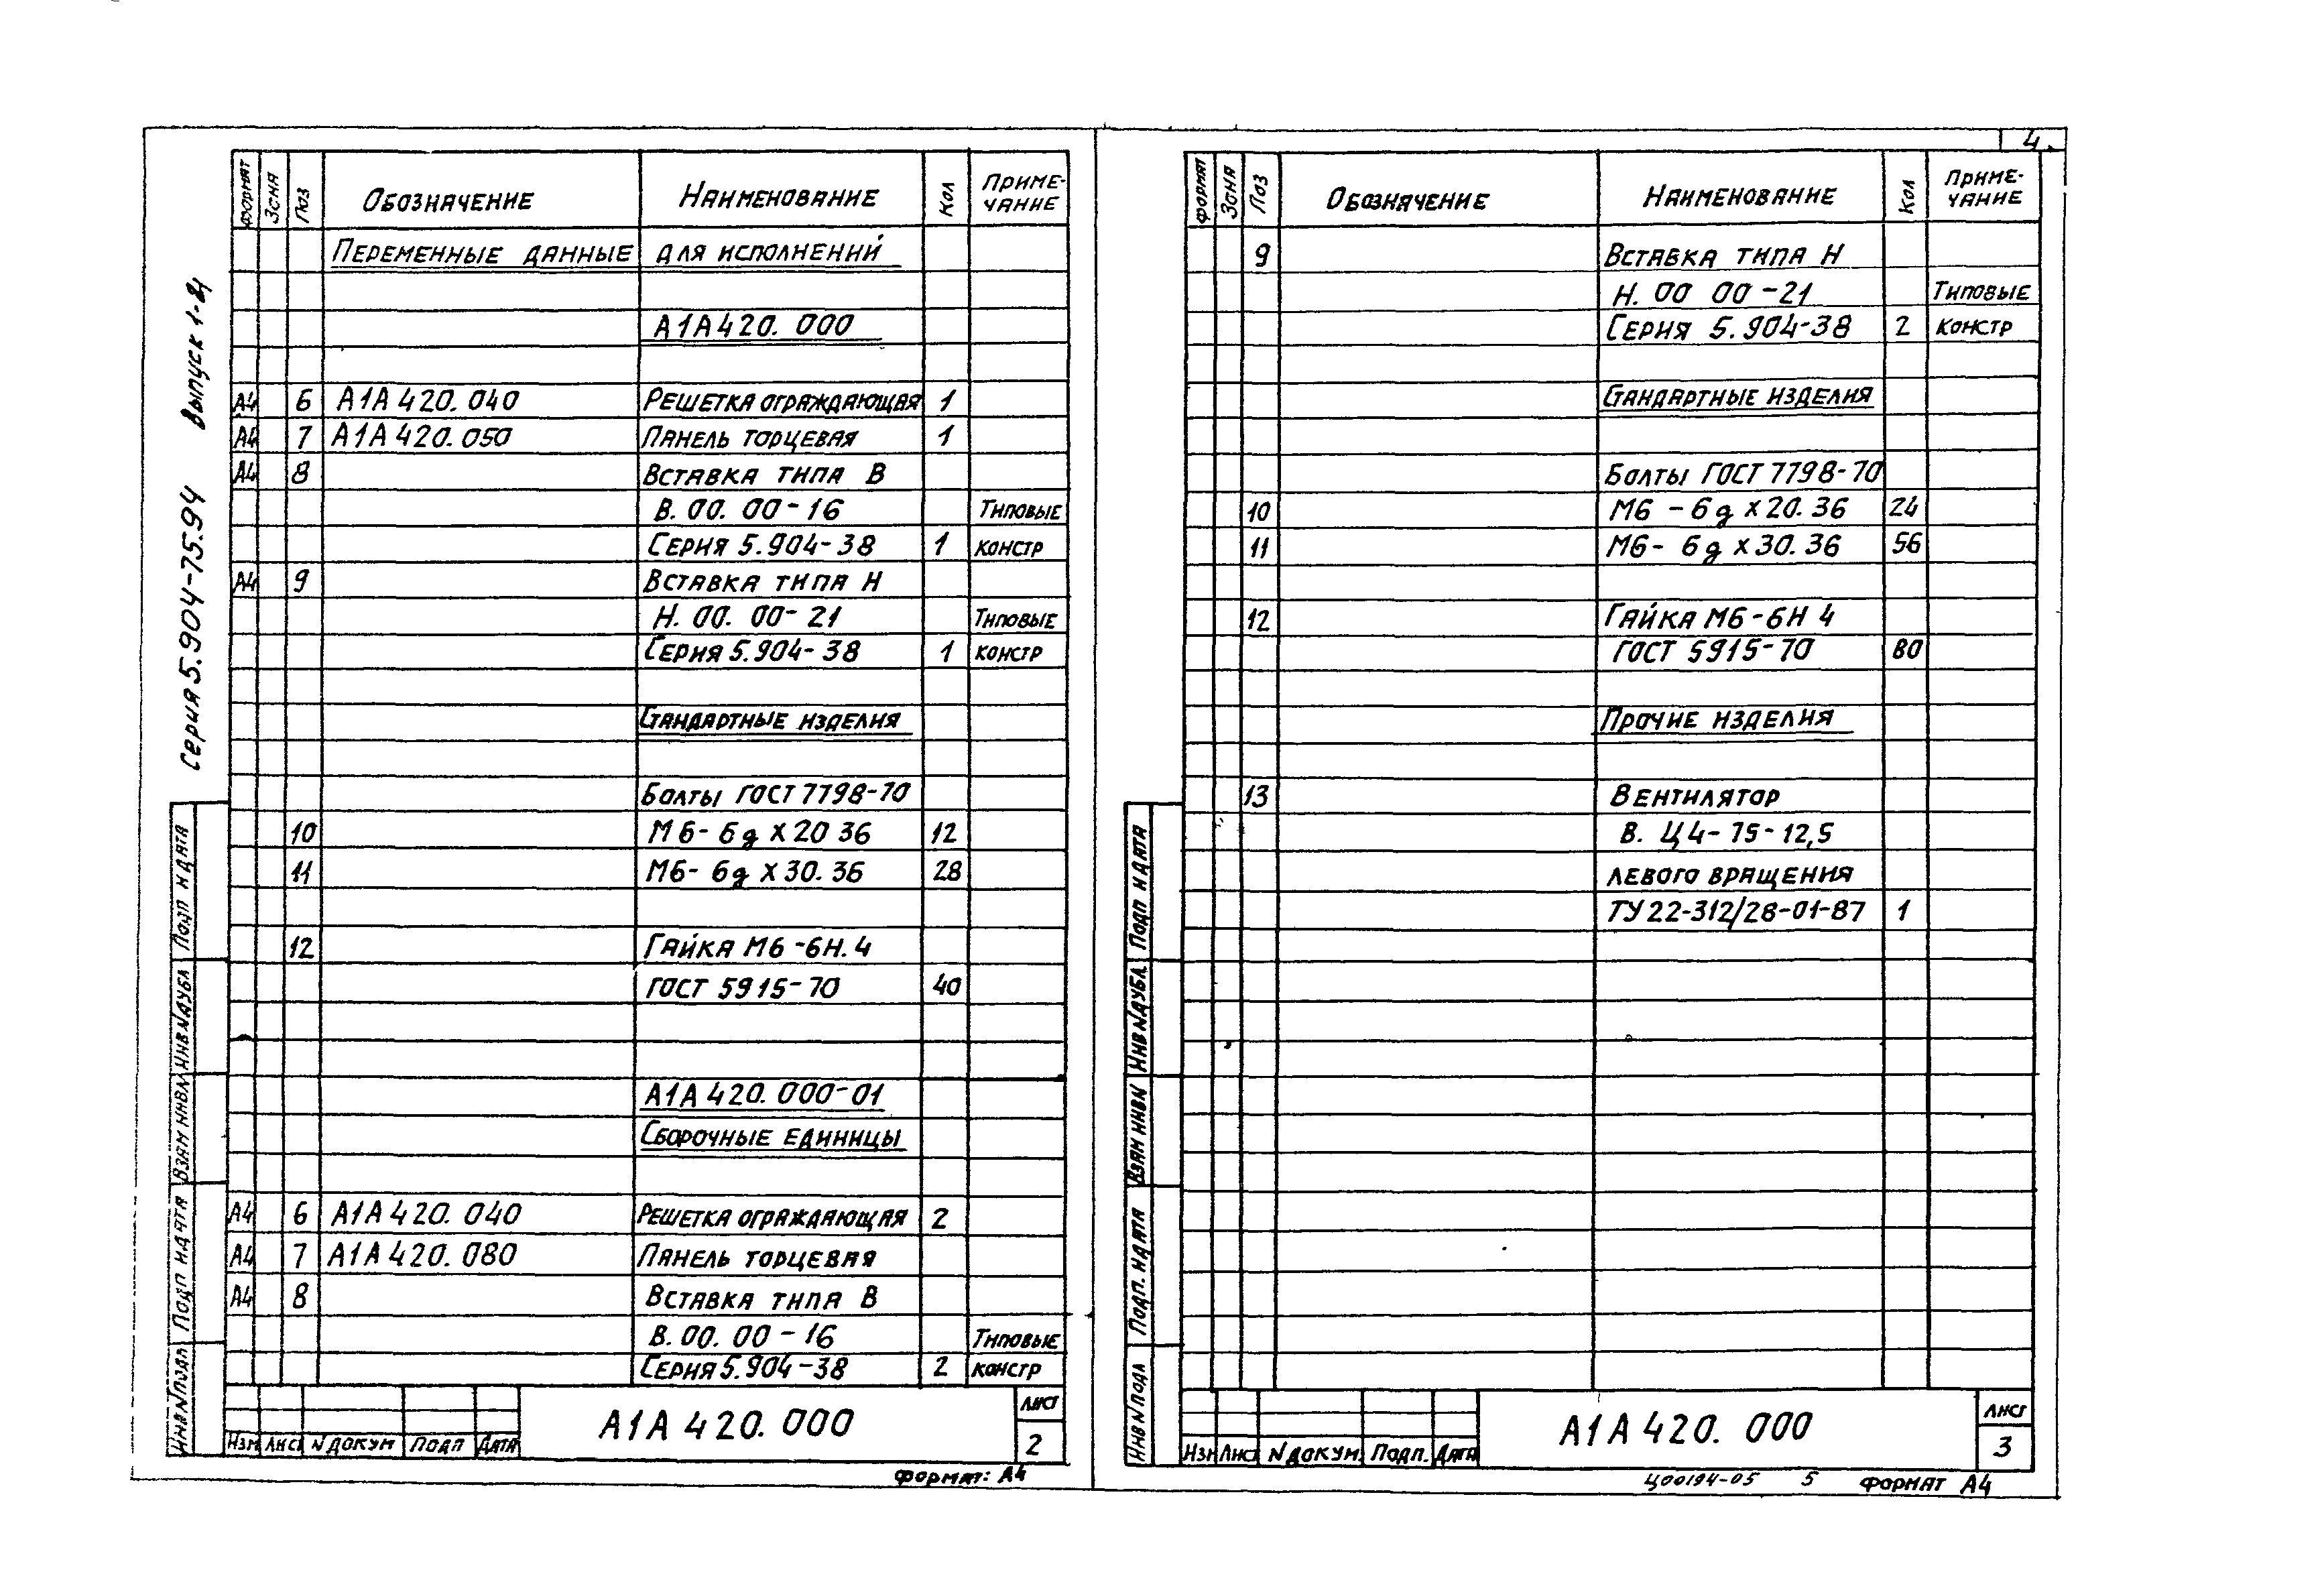 Серия 5.904-75.94 Выпуск 1-4
Формат Зона Поз Обозначение Наименование Кол Приме-
чание
Переменные данные для исполнений
А1А420.000
А4 6 А1А420.040 Решетка ограждающая 1
А4 7 А1А420.050 Панель торцевая 1
А4 8 Вставка типа В
В.00.00-16 Типовые
Серия 5.904-38 1 констр
А4 9 Вставка типа Н
Н.00.00-21 Типовые
Серия 5.904-38 1 констр
Стандартные изделия
Болты ГОСТ 7798-70
10 М6-6g х 20 36 12
11 М6-6g х 30.36 28
12 Гайка М6-6Н.4
ГОСТ 5915-70 40
А1А420.000-01
Сборочные единицы
А4 6 А1А420.040 Решетка ограждающая 2
А4 7 А1А420.080 Панель торцевая
А4 8 Вставка типа В
В.00.00-16 Типовые
Серия 5.904-38 2 констр
Подп и дата
Инв№дубл
Взам инв№
Подп и дата
Инв№подл
Изм Лист №докум Подп Дата
А1А420.000
Лист
2
Формат: А4
4.
Формат Зона Поз Обозначение Наименование Кол Приме-
чание
9 Вставка типа Н
Н.00 00-21 Типовые
Серия 5.904-38 2 констр
Стандартные изделия
Болты ГОСТ 7798-70
10 М6-6g х 20.36 24
11 М6-6g х 30.36 56
12 Гайка М6-6Н 4
ГОСТ 5915-70 80
Прочие изделия
13 Вентилятор
В. Ц4-75-12,5
левого вращения
ТУ22-312/28-01-87 1
Подп и дата
Инв№дубл.
Взам инв№
Подп. и дата
Инв№подл
Изм Лист №докум. Подп. Дата
А1А420.000
Лист
3
Ц00194-05 5 Формат А4